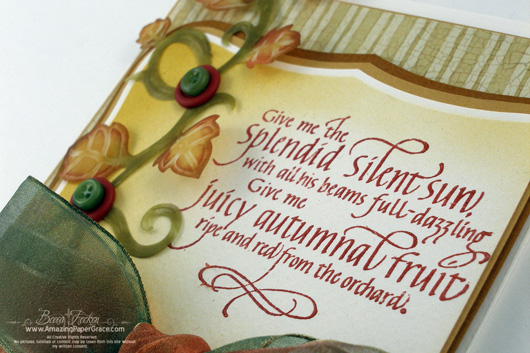 Give me the
splendid silent sun,
with all his beams full-dazzling
Give me
juicy autumnal fruit
ripe and red from the orchard.
Becca Feeken
www.AmazingPaperGrace.com
All Creative Rights Reserved.
No pictures, tutorials or content may be taken from this site without
my written consent.